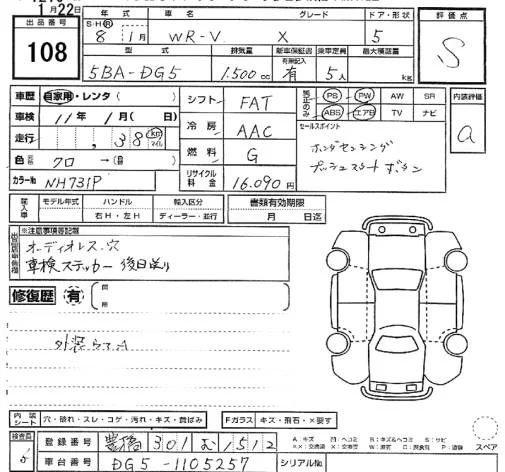 1月22日
出品番号 108
年式 車名 グレード ドア・形状
S・H・R 8 1月 WR-V X 5
型式 排気量 新車保証書 乗車定員 最大積載量
有無記入
5BA-DG5 1.500cc 有 5人 kg
評価点
S
車歴 自家用・レンタ( )
車検 11年 1月( 日)
走行 , 38 km マイル
色 クロ →( )
カラーNo NH731P
シフト FAT
冷房 AAC
燃料 G
リサイクル料金 16.090円
純正のみ PS PW AW SR
ABS エアB TV ナビ
セールスポイント
ホンダセンシング
プッシュスタートボタン
内装評価
a
輸入車 モデル年式 ハンドル 輸入区分
右H・左H ディーラー・並行
書類有効期限
月 日迄
※注意事項等記載
オーディオレス穴
車検ステッカー 後日送り
修復歴 有
箇所
外装 A
内装シート 穴・破れ・スレ・コゲ・汚れ・キズ・黄ばみ
Fガラス キズ・飛石・×要す
検査員
登録番号 豊橋 301 む 1512
車台番号 DG5-1105257
シリアルNo.
A キズ
スペア